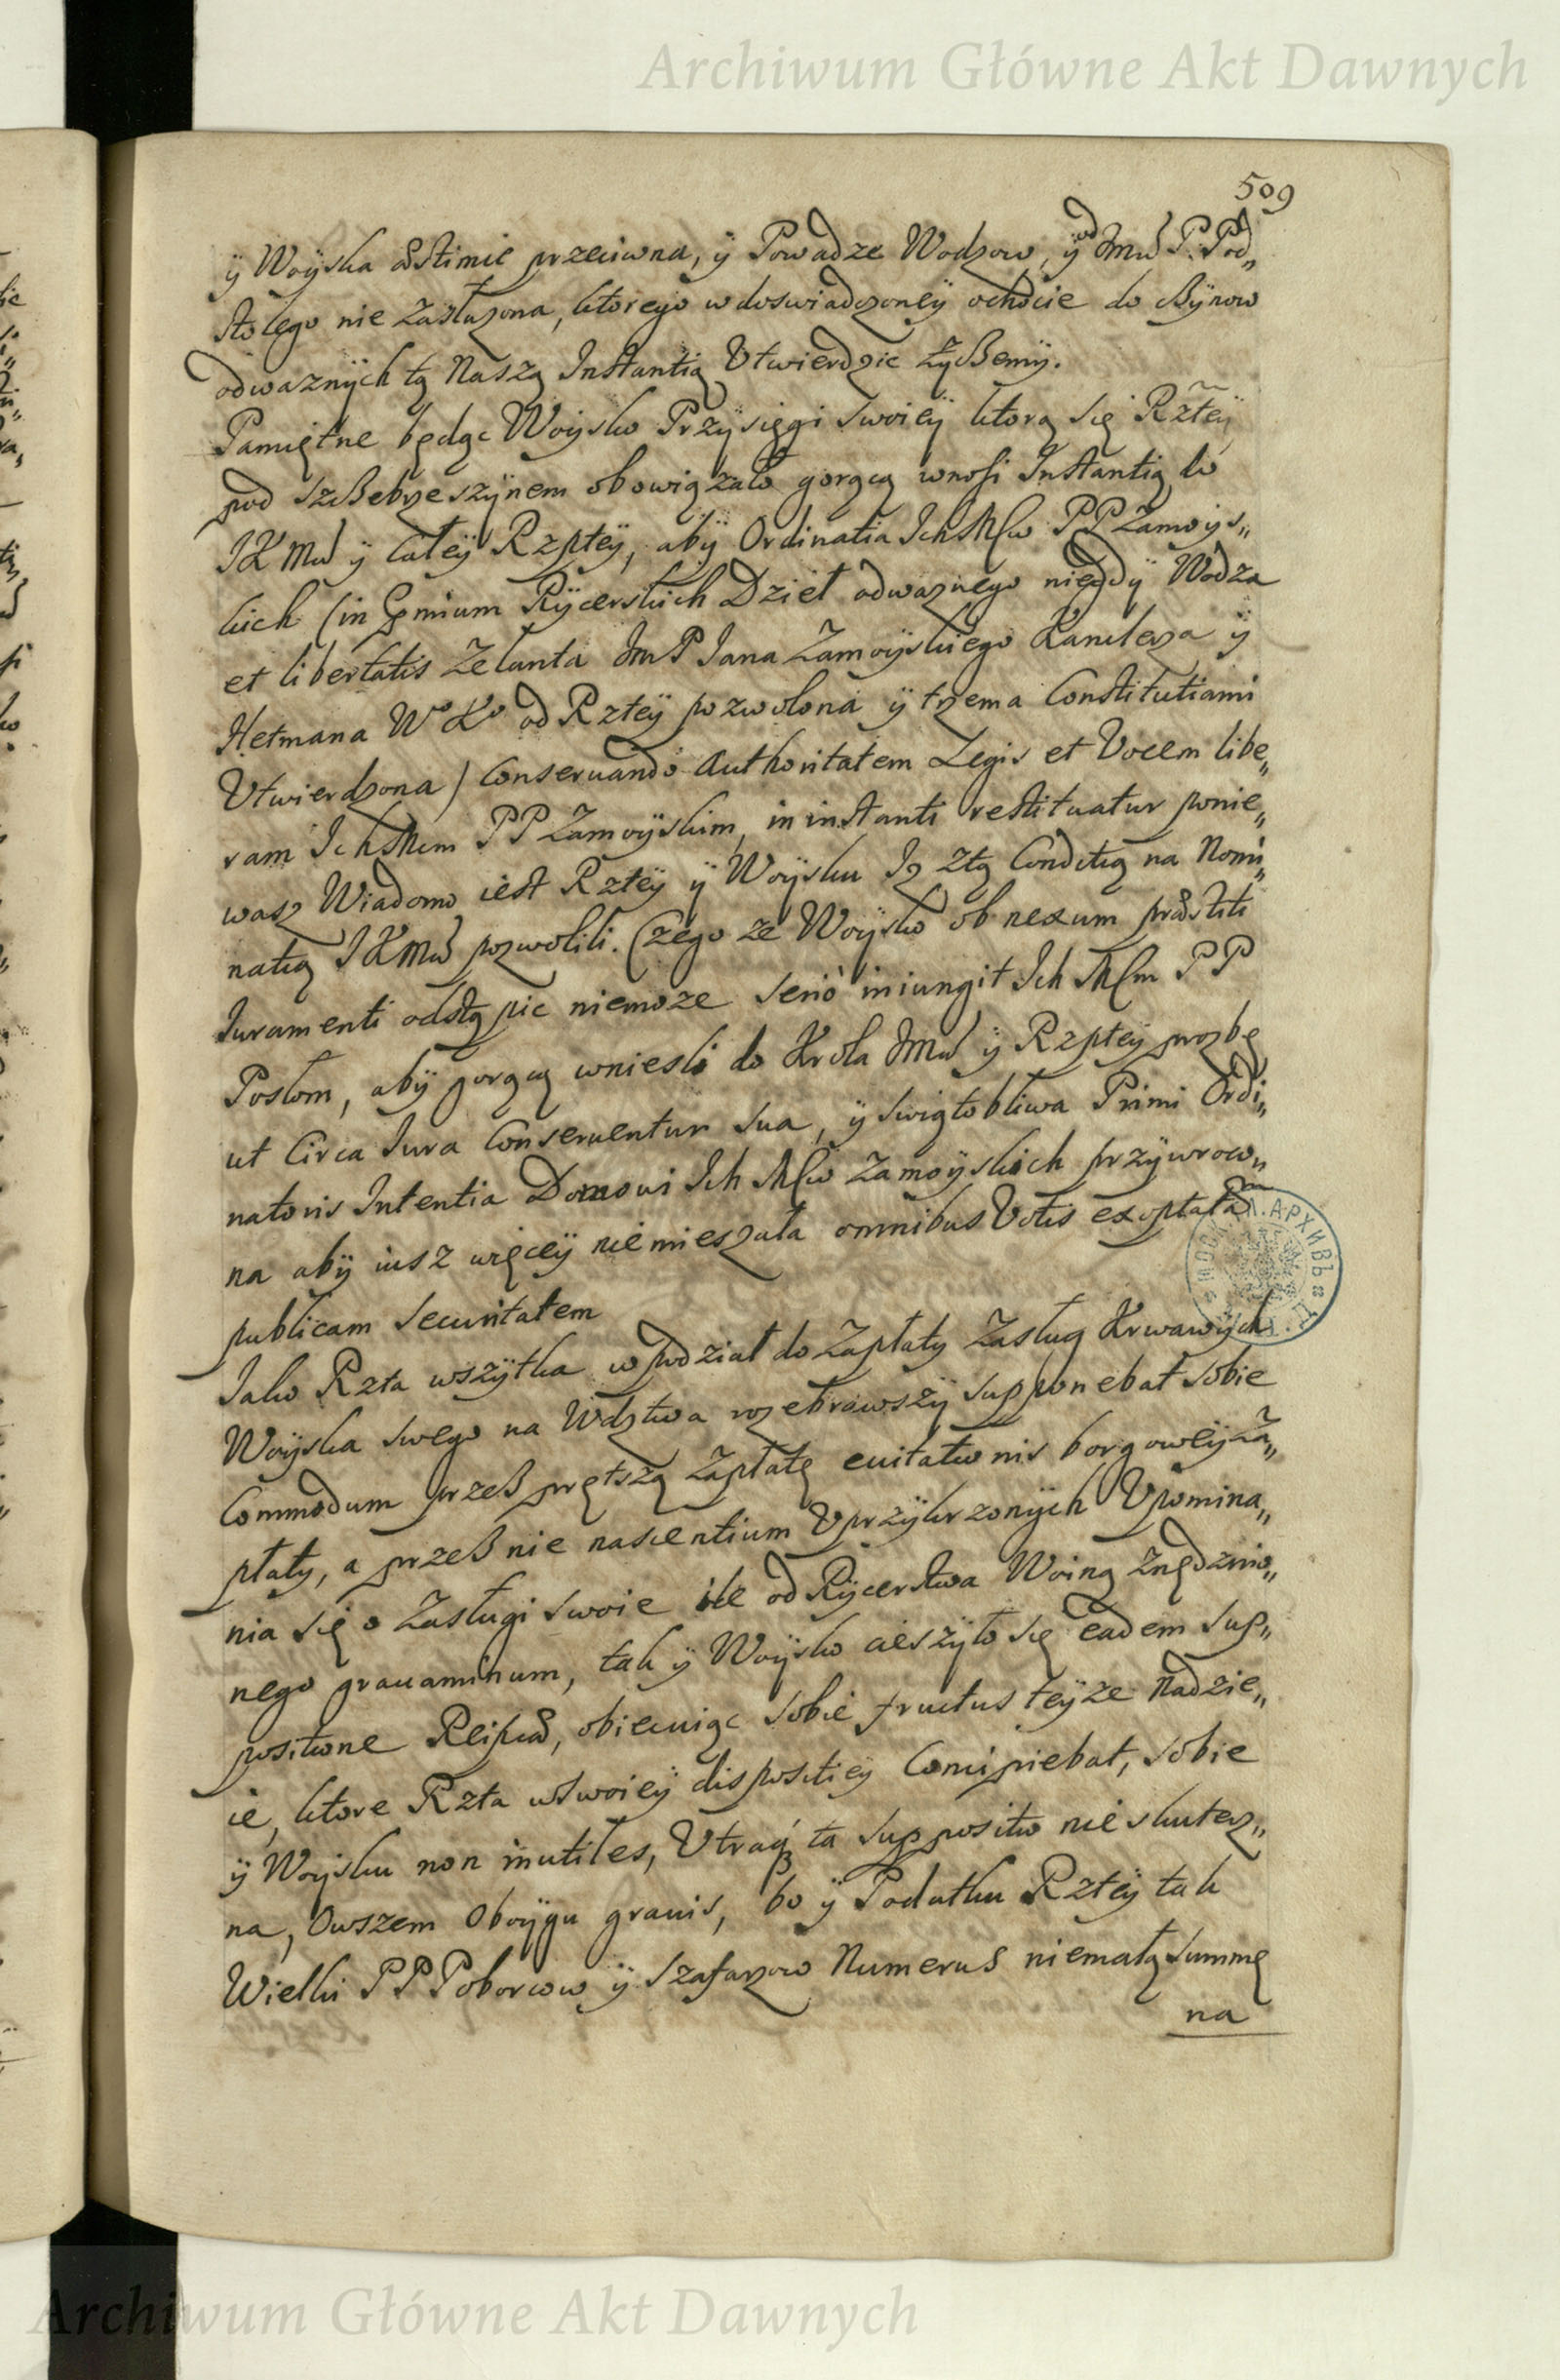 Archiwum Główne Akt Dawnych
509
ÿ Woÿska æstimie przeciwna, ÿ Powadze Wodzow, ÿ od Jmći P. Pod„
stolego nie zasłużona, ktorego w doswiadczoneÿ ochocie do Czÿnow
odważnÿch tą Naszą Instantią Vtwierdzic życzemÿ.
Pamiętne będąc Woÿsko Przÿsięgi swoieÿ ktorą się Rzteÿ
pod Szczebrzeszÿnem obowiązało gorącą wnosi Instantią do
JKMci ÿ całeÿ Rzpteÿ, abÿ Ordinatia Ich Mciw PP Zamoÿs„
kich (in Præmium Rÿcerskich Dzieł odwaznego niegdÿ Wodza
et libertatis Zelanta JmP Jana Zamoÿskiego Kanclerza ÿ
Hetmana Wo Ko od Rzteÿ pozwolona ÿ trzema Constitutiami
Vtwierdzona) Conseruando Authoritatem Legis et Vocem libe„
ram Ich Mcim PP Zamoÿskim, in instanti restituatur ponie„
wasz Wiadomo iest Rzteÿ ÿ Woÿsku Iz ztą Conditią na Nomi„
natią JKMci pozwolili. Czego ze Woÿsko ob nexum præstiti
Iuramenti odstąpic niemoze serio iniungit Ich Mcim PP
Posłom, abÿ gorącą wniesli do Krola Jmci ÿ Rzpteÿ prozbę
ut Circa Iura Conseruentur sua, ÿ swiątobliwa Primi Ordi„
natoris Intentia Domowi Ich Mciw Zamoÿskich przÿwroco„
na abÿ iusz więceÿ nie mieszała omnibus Votis exoptatam
publicam securitatem
Jako Rzta wszÿtka w podział do Zapłaty Zasług Krwawÿch
Woÿska swego na Wdztwa rozebrawszÿ supponebat sobie
Commodum przez prętszą Zapłatę euitationis borgoweÿ Za„
płaty, a przez nie nascentium Vprzÿkrzonÿch Vpomina„
nia się o Zasługi swoie ile od Rÿcerstwa Woiną Znędznio„
nego grauaminum, tak ÿ Woÿsko cieszÿło się eadem sup„
positione Reipcæ, obiecuiąc sobie fructus teÿze Nadzie„
ie, ktore Rzta w swoieÿ dispositieÿ Concipiebat, sobie
ÿ Woÿsku non inutiles, Vtraq ta suppositio nie skutecz„
na, Owszem Oboÿgu grauis, bo ÿ Podatku Rzteÿ tak
Wielki PP Poborcow ÿ Szafarzow Numerus niemałą summę
na
Archiwum Główne Akt Dawnych